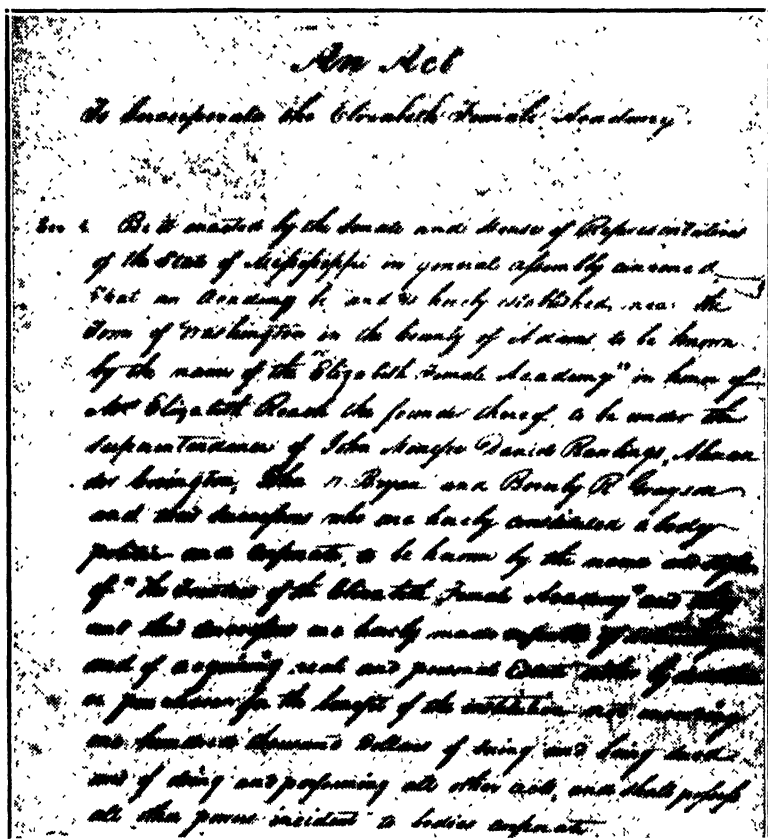 An Act
To Incorporate the Elizabeth Female Academy.
Sec 1. Be it enacted by the Senate and House of Representatives
of the State of Mississippi in general assembly convened,
That an Academy be and is hereby established, near the
Town of Washington in the County of Adams, to be known
by the name of the "Elizabeth Female Academy" in honor of
Mrs Elizabeth Roach the founder thereof, to be under the
superintendance of John Menefee David Rawlings, Alexan
der Covington, John W Bryan and Beverly R Grayson
and their successors who are hereby constituted a body
politic and corporate, to be known by the name and style
of "The Trustees of the Elizabeth Female Academy" and they
and their successors are hereby made capable of
and of acquiring real and personal Estate either by donation
or purchase for the benefit of the institution not exceeding
one hundred thousand Dollars of suing and being sued
and of doing and performing all other acts, and shall possess
all other powers incident to bodies corporate